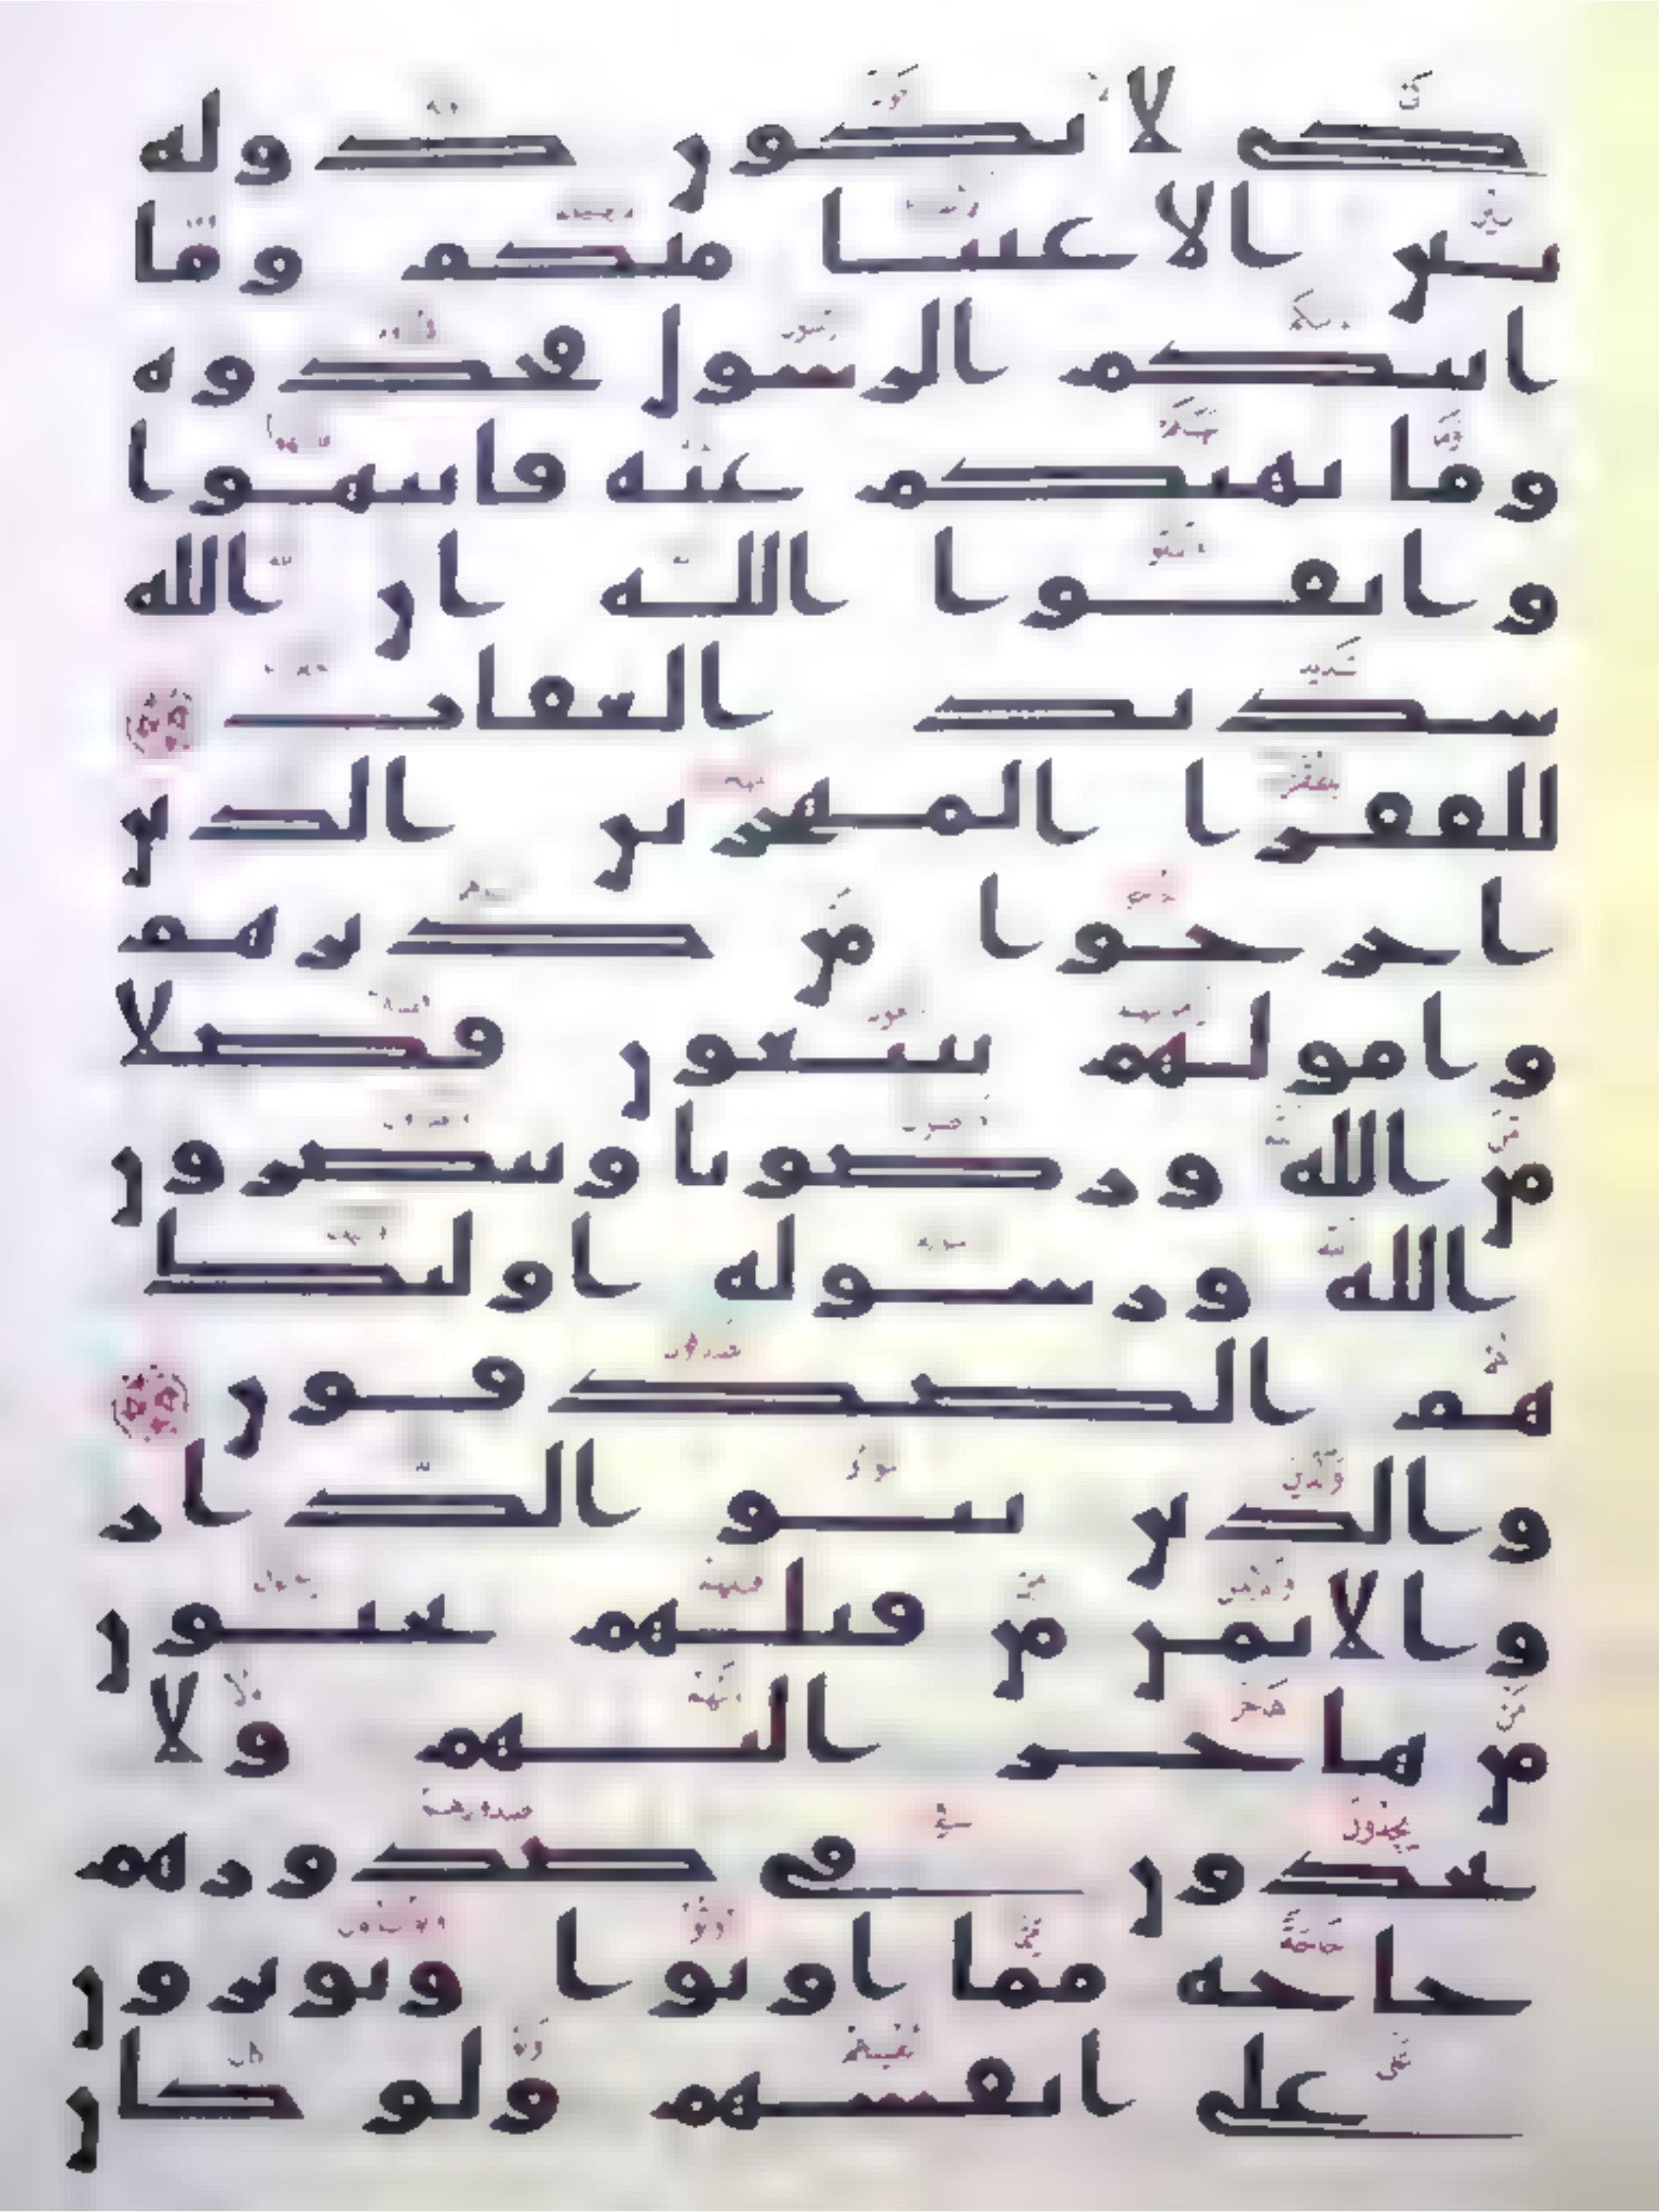 كى لا يكون دوله
بين الاغنيا منكم وما
اتيكم الرسول فخذوه
وما نهيكم عنه فانتهوا
واتقوا الله ان الله
شديد العقاب
للفقرا المهجرين الذين
اخرجوا من ديرهم
وامولهم يبتغون فضلا
من الله ورضونا وينصرون
الله ورسوله اوليك
هم الصدقون
والذين تبوو الدار
والايمن من قبلهم يحبون
من هاجر اليهم ولا
يجدون فى صدورهم
حاجه مما اوتوا ويوثرون
على انفسهم ولو كان